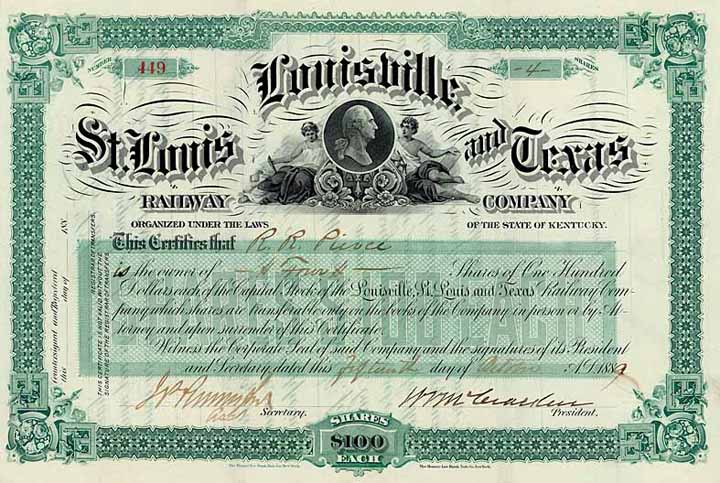 NUMBER
449
-4-
SHARES
Louisville,
St. Louis
and Texas
RAILWAY COMPANY
ORGANIZED UNDER THE LAWS OF THE STATE OF KENTUCKY.
This Certifies that R. R. Pierce
is the owner of Four Shares of One Hundred
Dollars each of the Capital Stock of the Louisville, St. Louis and Texas Railway Com-
pany, which shares are transferable only on the books of the Company in person or by At-
torney and upon surrender of this Certificate.
Witness the Corporate Seal of said Company and the signatures of its President
and Secretary, dated this day of A.D. 1889
Secretary. President.
SHARES
$100
EACH
Countersigned and Registered
this day of 188
THIS CERTIFICATE IS NOT VALID WITHOUT THE
SIGNATURE OF THE REGISTRAR OF TRANSFERS.
REGISTRAR OF TRANSFERS.